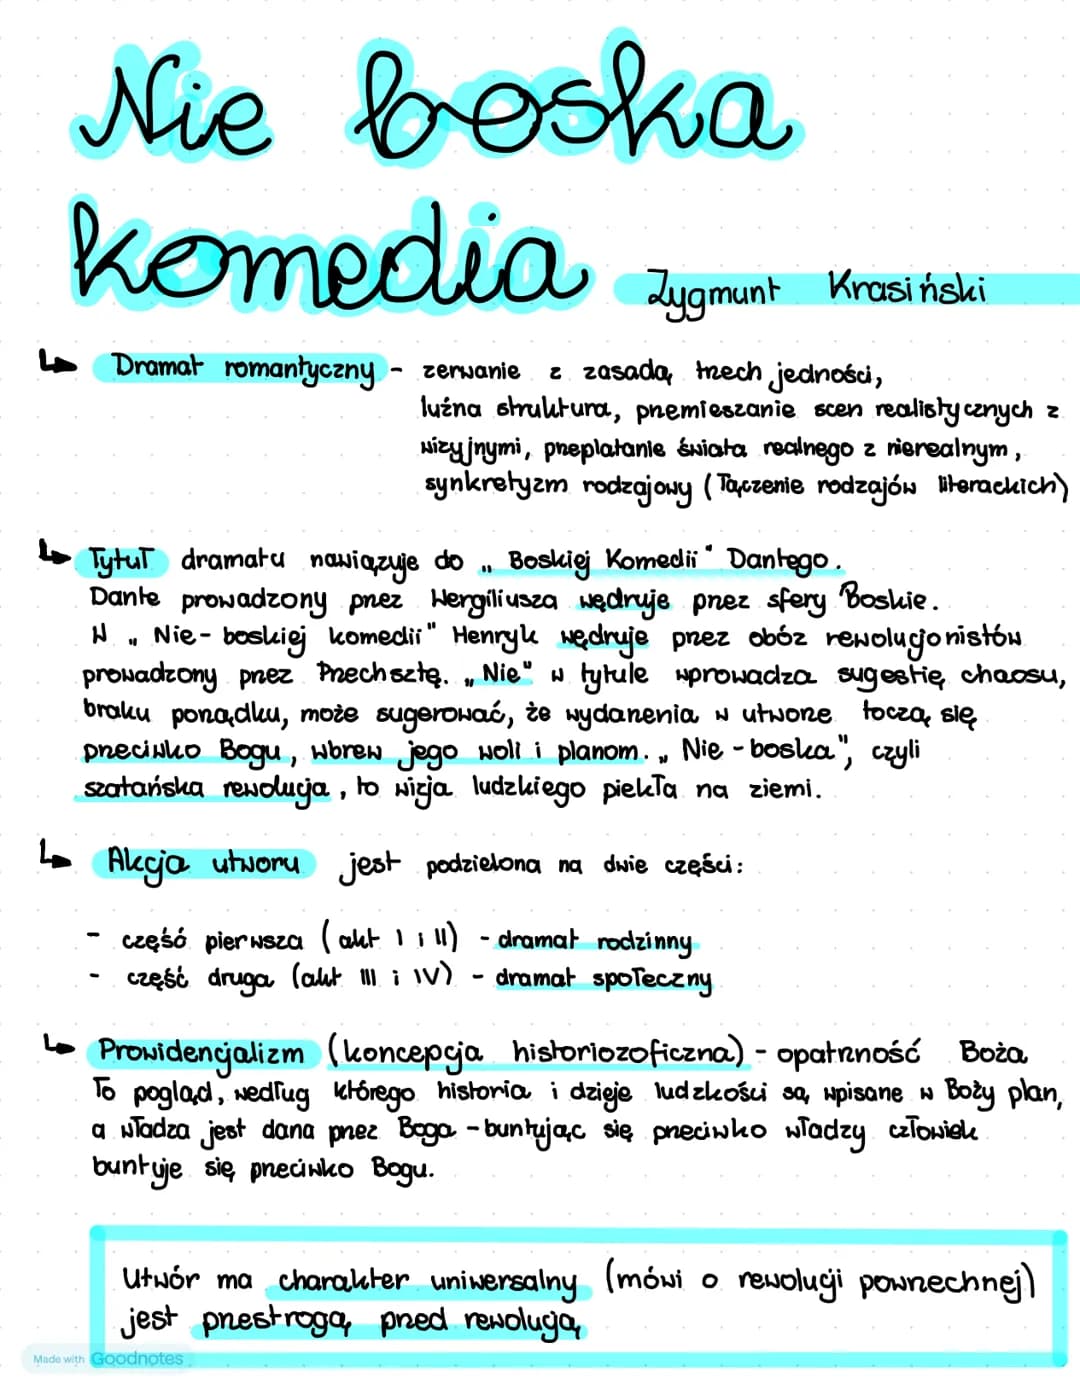 Nie boska
komedia
Zygmunt Krasiński
Dramat romantyczny - zerwanie z zasadą trzech jedności,
luźna struktura, przemieszanie scen realistycznych z
wizyjnymi, przeplatanie świata realnego z nierealnym,
synkretyzm rodzajowy (Tączenie rodzajów literackich)
Tytuł dramatu nawiązuje do „Boskiej Komedii" Dantego.
Dante prowadzony przez Wergiliusza wędruje przez sfery Boskie.
W „Nie-boskiej komedii" Henryk wędruje przez obóz rewolucjonistów
prowadzony przez Przechsztę. „Nie" w tytule wprowadza sugestię chaosu,
braku porządku, może sugerować, że wydarzenia w utworze toczą się
przeciwko Bogu, wbrew jego woli i planom. „Nie-boska", czyli
szatańska rewolucja, to wizja ludzkiego piekła na ziemi.
Akcja utworu jest podzielona na dwie części:
- część pierwsza (akt I i II) - dramat rodzinny
- część druga (akt III i IV) - dramat społeczny
Prowidencjalizm (koncepcja historiozoficzna) - opatrzność Boża
To pogląd, według którego historia i dzieje ludzkości są wpisane w Boży plan,
a władza jest dana przez Boga - buntując się przeciwko władzy człowiek
buntuje się przeciwko Bogu.
Utwór ma charakter uniwersalny (mówi o rewolucji powrzechnej)
jest przestrogą przed rewolucją
Made with Goodnotes